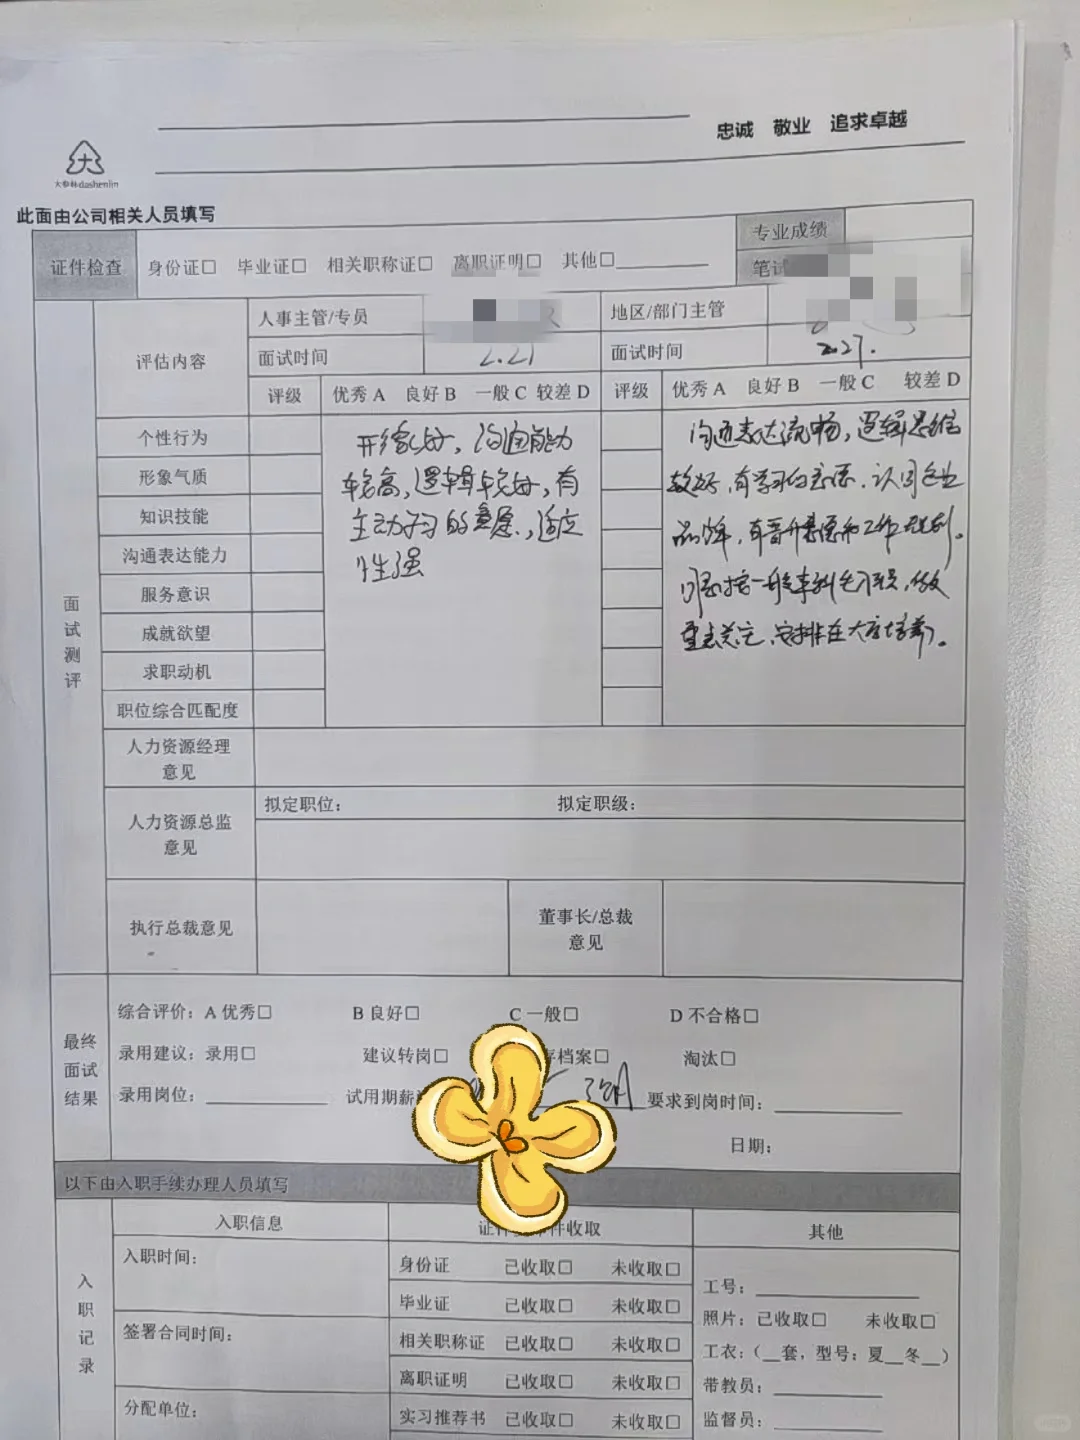 忠诚 敬业 追求卓越
大
大参林dashenlin
此面由公司相关人员填写
证件检查 身份证□ 毕业证□ 相关职称证□ 离职证明□ 其他□
专业成绩
笔试
面试测评
评估内容
人事主管/专员
地区/部门主管
面试时间 2.21
面试时间 2.27.
评级 优秀 A 良好 B 一般 C 较差 D
评级 优秀 A 良好 B 一般 C 较差 D
个性行为
形象气质
知识技能
沟通表达能力
服务意识
成就欲望
求职动机
职位综合匹配度
形象较好,沟通能力
较高,逻辑较好,有
主动学习的意愿,适应
性强
沟通表达流畅,逻辑思维
较好,有学习的意愿,认同企业
品牌,有晋升意愿和工作规划。
重点关注,安排在大店培养。
人力资源经理
意见
人力资源总监
意见
拟定职位: 拟定职级:
执行总裁意见
董事长/总裁
意见
最终
面试
结果
综合评价:A 优秀□ B 良好□ C 一般□ D 不合格□
录用建议:录用□ 建议转岗□ 存档案□ 淘汰□
录用岗位: 试用期薪 要求到岗时间:
日期:
以下由入职手续办理人员填写
入职记录
入职信息
件收取
其他
入职时间:
签署合同时间:
分配单位:
身份证 已收取□ 未收取□
毕业证 已收取□ 未收取□
相关职称证 已收取□ 未收取□
离职证明 已收取□ 未收取□
实习推荐书 已收取□ 未收取□
工号:
照片:已收取□ 未收取□
工衣:(__套,型号:夏__冬__)
带教员:
监督员: